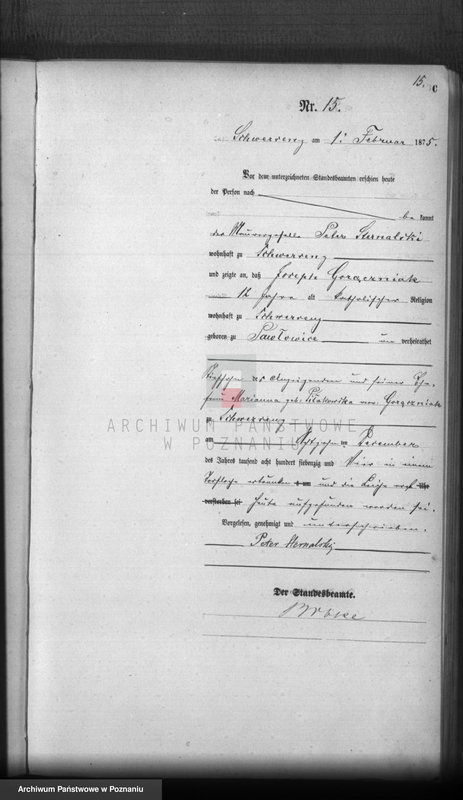 15.
C
Nr. 15.
Schwersenz am 1. Februar 1875.
Vor dem unterzeichneten Standesbeamten erschien heute
der Person nach
bekannt
der Maurergeselle Peter Sternalski
wohnhaft zu Schwersenz
und zeigte an, daß Joseph Gorączniak
12 Jahre alt katholischer Religion
wohnhaft zu Schwersenz
geboren zu Pawłowice unverheirathet
des Anzeigenden und seiner Ehe-
frau Marianna geb. verw. Gorączniak
zu Schwersenz
am December
des Jahres tausend acht hundert siebenzig und vier in einem
ertrunken und die Leiche
verstorben sei heute aufgefunden worden sei.
Vorgelesen, genehmigt und unterschrieben.
Peter Sternalski
Der Standesbeamte.
ARCHIWUM PAŃSTWOWE
W POZNANIU
Archiwum Państwowe w Poznaniu